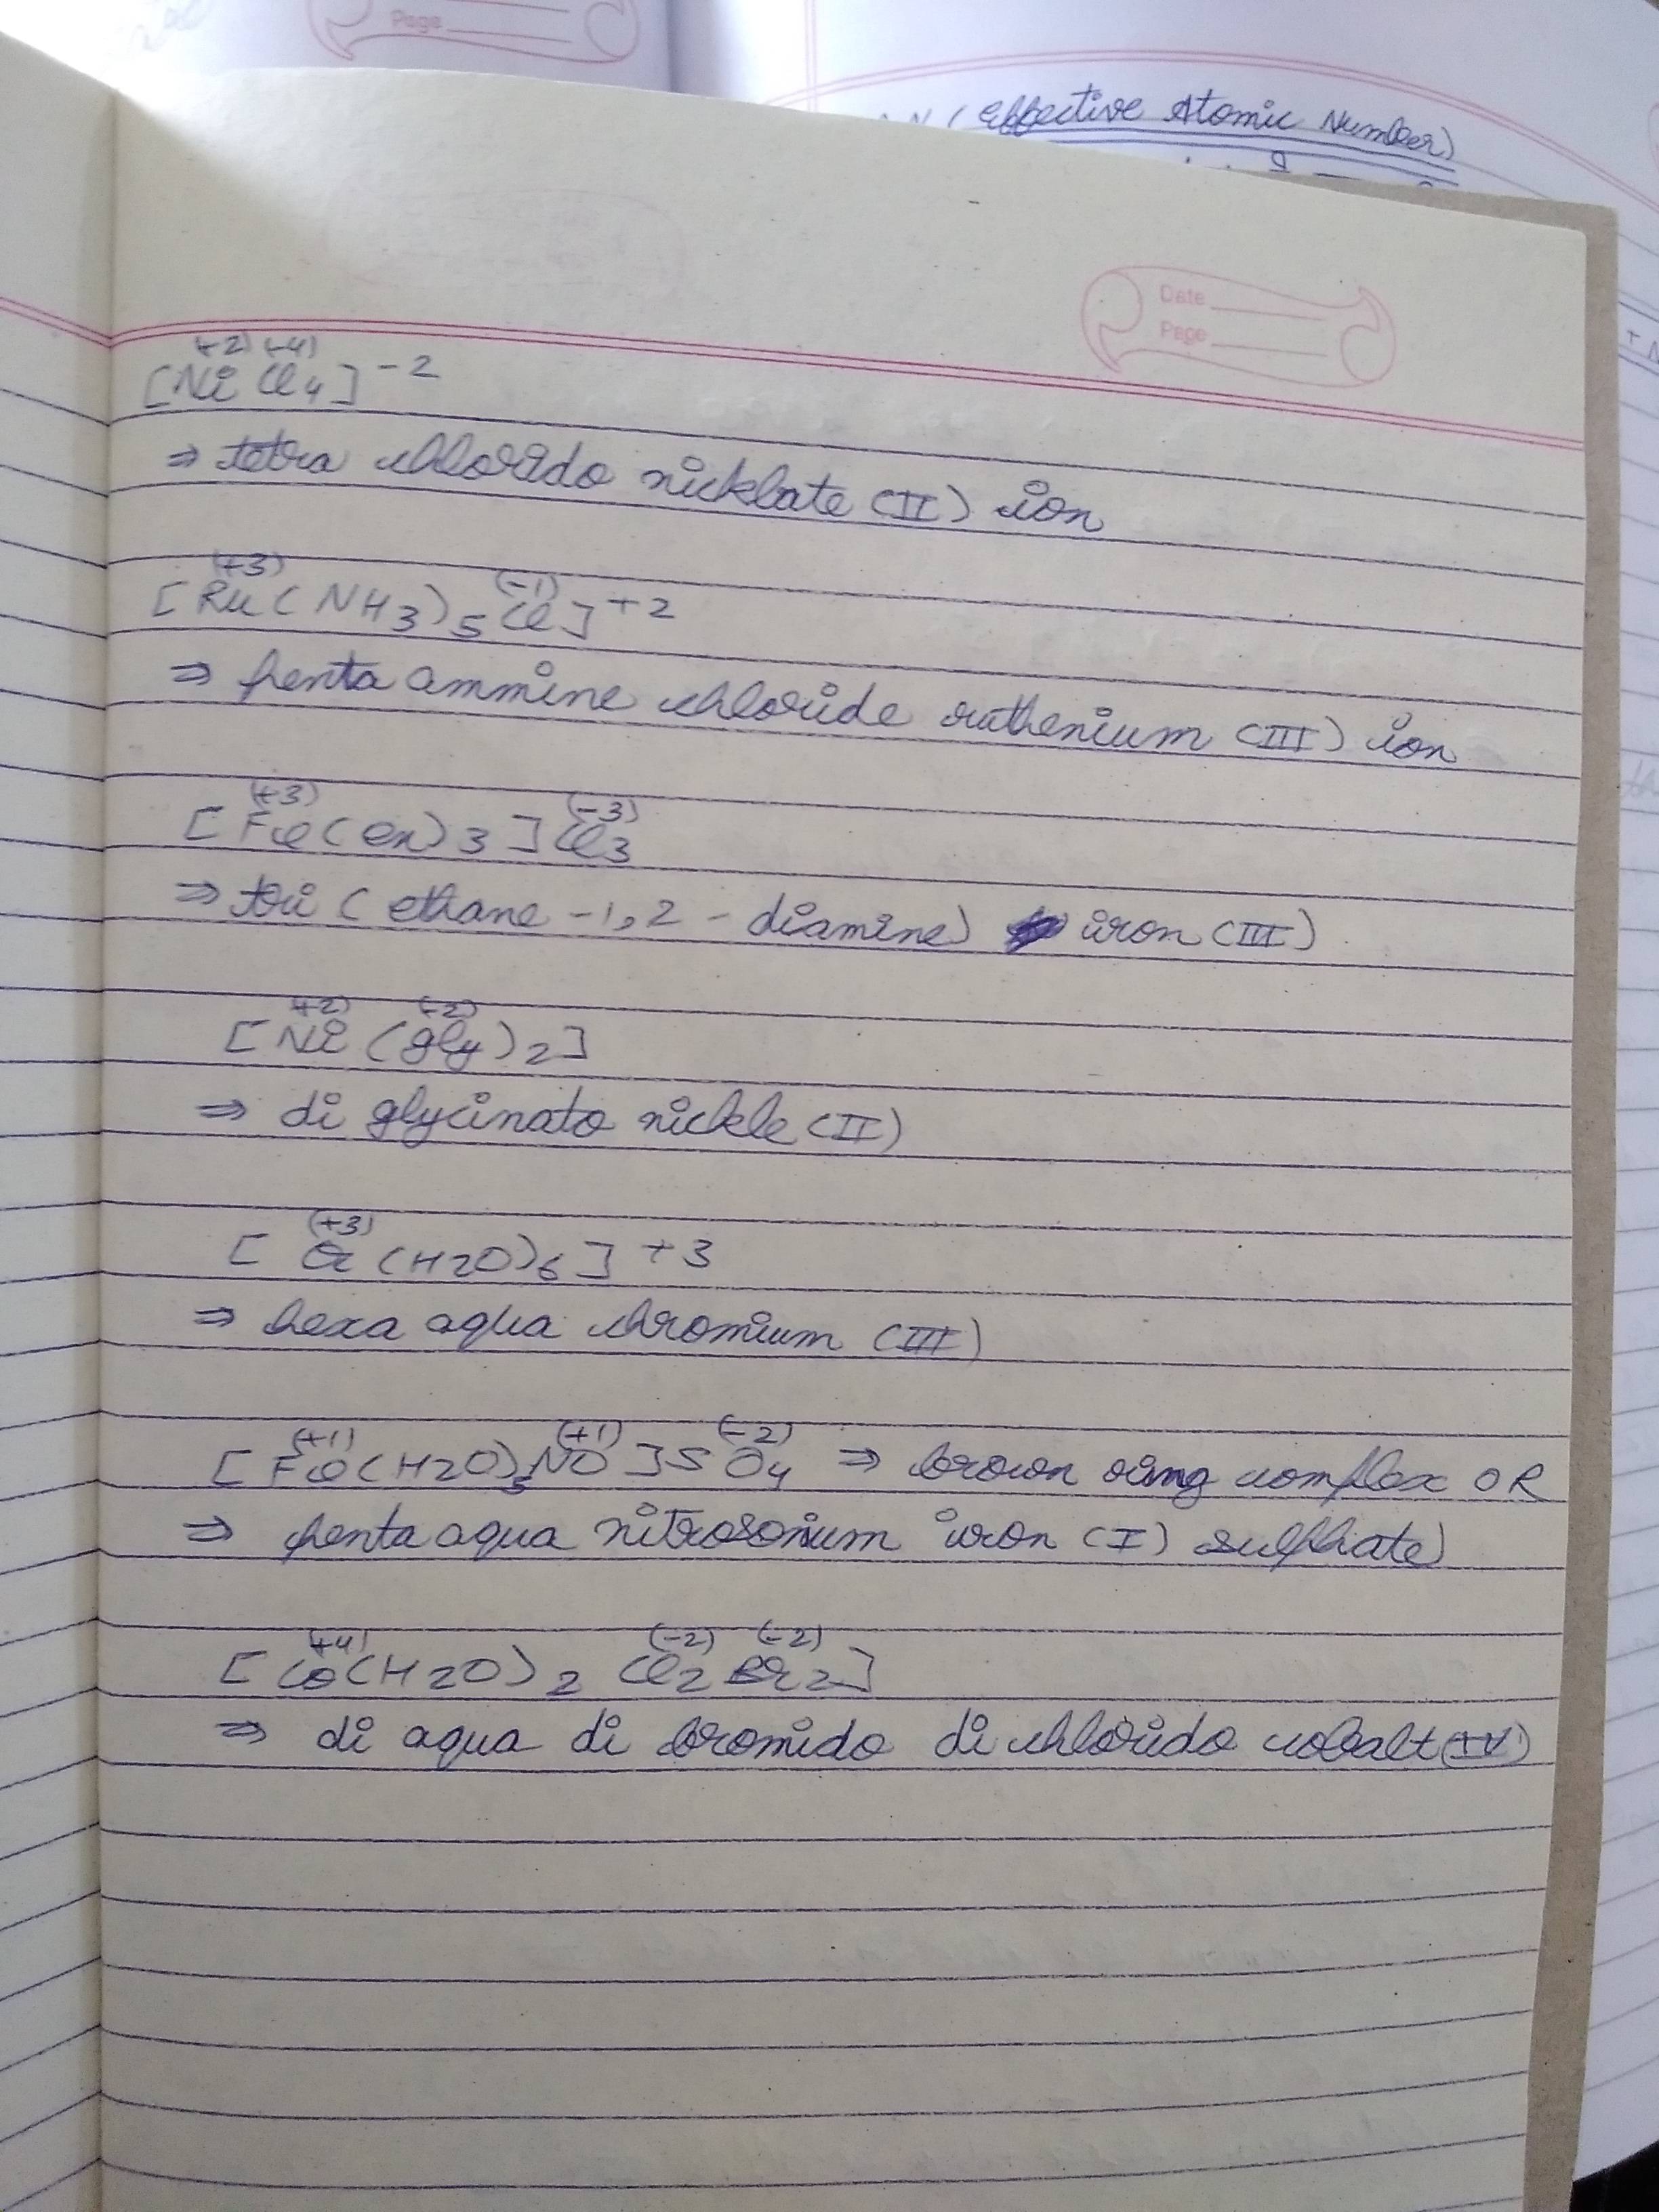 Page
(Effective Atomic Number)
Date
Page
(+2) (-4)
[Ni Cl4]-2
⇒ tetra chlorido nicklate (II) ion
(+3) (-1)
[Ru(NH3)5 Cl]+2
⇒ penta ammine chloride ruthenium (III) ion
(+3) (-3)
[Fe(en)3]Cl3
⇒ tri (ethane -1,2 - diamine) iron (III)
(+2) (-2)
[Ni (gly)2]
⇒ di glycinato nickle (II)
(+3)
[Cr (H2O)6]+3
⇒ hexa aqua chromium (III)
(+1) (+1) (-2)
[Fe(H2O)5NO]SO4 ⇒ brown ring complex OR
⇒ penta aqua nitrosonium iron (I) sulphate
(+4) (-2) (-2)
[Co(H2O)2 Cl2 Br2]
⇒ di aqua di bromido di chlorido cobalt (IV)